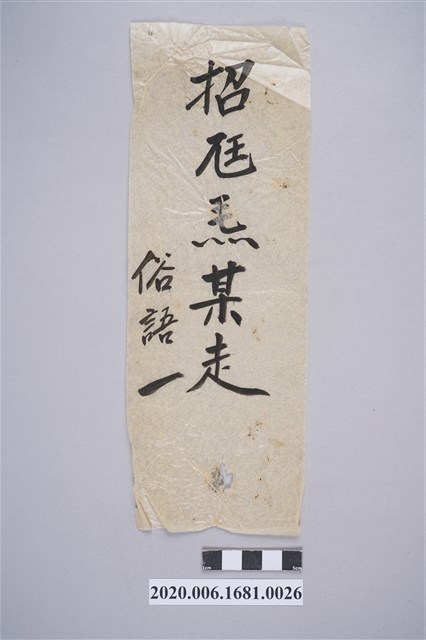 招尪𤆬某走
俗語一
2020.006.1681.0026